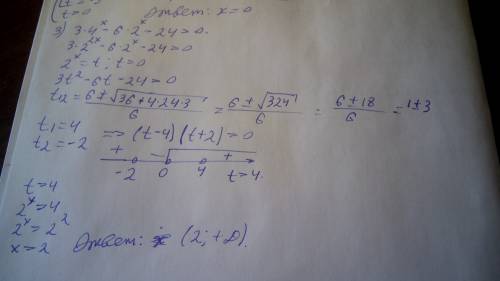 t=0 Ответ: x=0
3) 3·4^x-6·2^x-24>0.
3·2^2x-6·2^x-24>0
2^x=t; t>0
3t²-6t-24>0
t12=(6±√(36+4·24·3))/6=(6±√324)/6=(6±18)/6=1±3
t1=4
t2=-2 => (t-4)(t+2)>0
+ - +
-2 0 4 t=4.
t=4
2^x=4
2^x=2²
x=2 Ответ: (2;+∞).